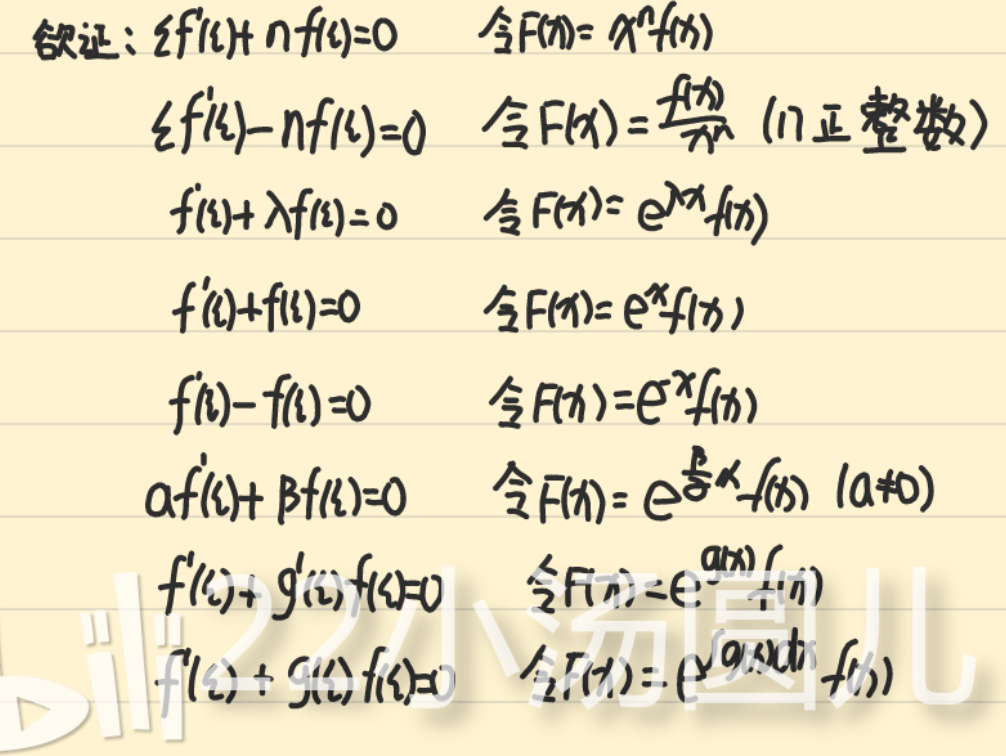 欲证：ξf'(ξ)+nf(ξ)=0 令F(x)=x^n f(x)
ξf'(ξ)-nf(ξ)=0 令F(x)=f(x)/x^n (n正整数)
f'(ξ)+λf(ξ)=0 令F(x)=e^{λx}f(x)
f'(ξ)+f(ξ)=0 令F(x)=e^x f(x)
f'(ξ)-f(ξ)=0 令F(x)=e^{-x}f(x)
αf'(ξ)+βf(ξ)=0 令F(x)=e^{\frac{β}{α}x}f(x) (α≠0)
f'(ξ)+g'(ξ)f(ξ)=0 令F(x)=e^{g(x)}f(x)
f'(ξ)+g(ξ)f(ξ)=0 令F(x)=e^{∫g(x)dx}f(x)
22小汤圆儿